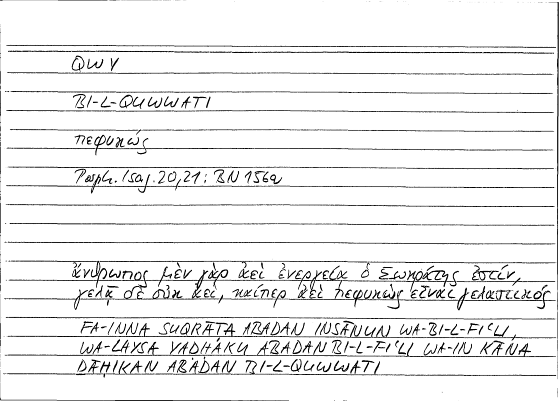 QWY
BI-L-QUWWATI
πεφυκώς
Porph. Isag. 20,21: BN 156a
ἄνθρωπος μὲν γὰρ ἀεὶ ἐνεργείᾳ ὁ Σωκράτης ἐστίν,
γελᾷ δὲ οὐκ ἀεί, καίπερ ἀεὶ πεφυκὼς εἶναι γελαστικός
FA-INNA SUQRĀṬA ABADAN INSĀNUN WA-BI-L-FIʿLI,
WA-LAYSA YAḌḤAKU ABADAN BI-L-FIʿLI WA-IN KĀNA
ḌĀḤIKAN ABADAN BI-L-QUWWATI